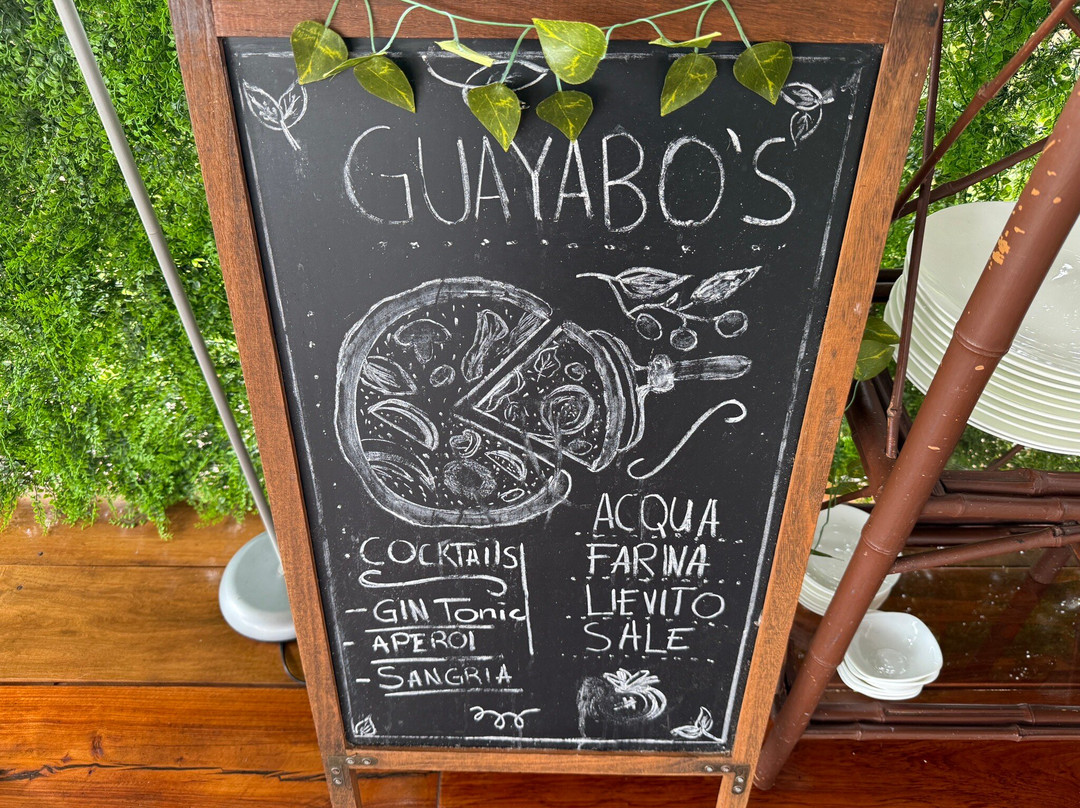 GUAYABO'S
COCKTAIlS
- GIN Tonic
- APEROl
- SANGRIA
ACQUA
FARINA
LIEVITO
SALE